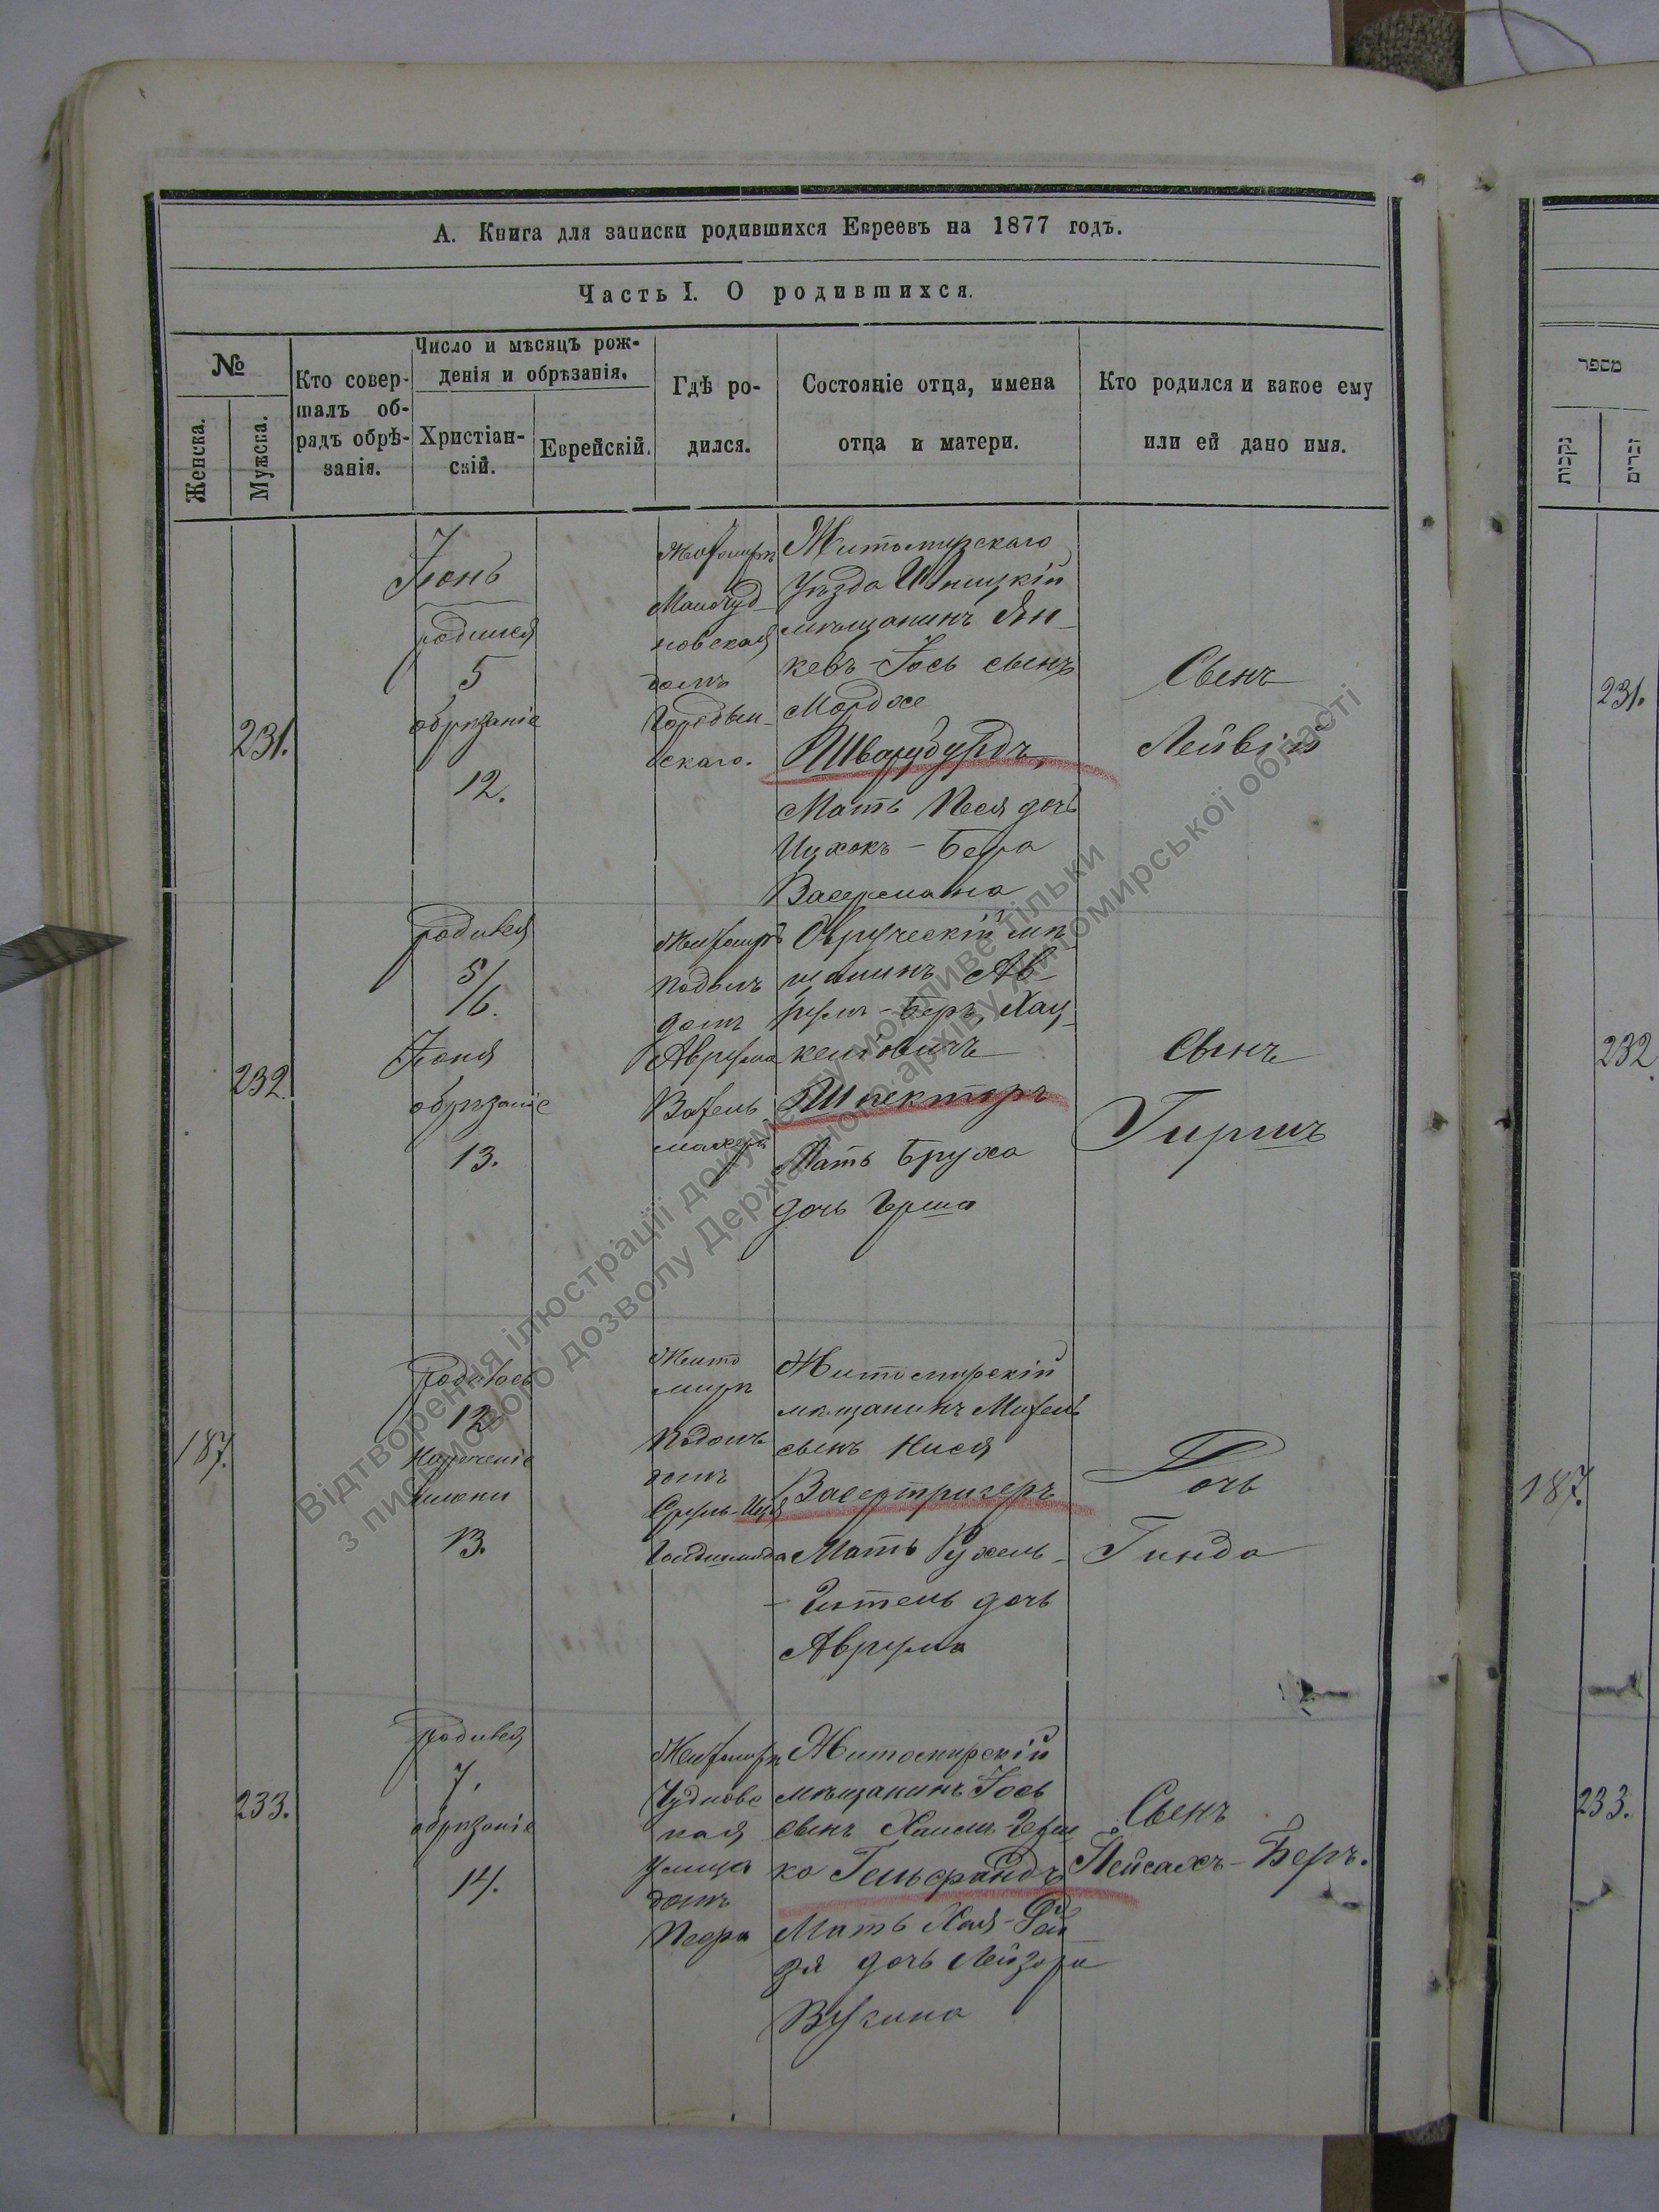 А. Книга для записки родившихся Евреевъ на 1877 годъ.
Часть I. О родившихся.
№
Женска.
Мужска.
Кто совер-
шалъ об-
рядъ обрѣ-
занія.
Число и мѣсяцъ рож-
денія и обрѣзанія.
Христіан-
скій.
Еврейскій.
Гдѣ ро-
дился.
Состояніе отца, имена
отца и матери.
Кто родился и какое ему
или ей дано имя.
231.
Іюнь
родился
5
обрѣзаніе
12.
Житомиръ
новская
домъ
скаго.
Житомирскаго
Уѣзда
мѣщанинъ Ян-
кевъ-Іось сынъ
Мордхе
Мать Песя дочь
Ицхокъ-Бера
Васермана
Сынъ
Лейвій
232.
родился
5/6.
Іюня
обрѣзаніе
13.
Житомиръ
Подолъ
домъ
Аврума
Ватель
махера
Овручскій мѣ-
щанинъ Ав-
румъ-Беръ Хац-
келовичъ
Шпекторъ
Мать Бруха
дочь Герша
Сынъ
Гиршъ
187.
родилась
12
Нареченіе
имени
13.
Жито
миръ
Подолъ
домъ
Сруль-
Житомирскій
мѣщанинъ
сынъ Нися
Васертригеръ
Мать Рухель-
-Гитель дочь
Аврума
Дочь
Гинда
233.
родился
7.
обрѣзаніе
14.
Житомиръ
Чудновс
кая
улица
домъ
Житомирскій
мѣщанинъ Іось
сынъ Хаимъ-Герш
ко Гельфандъ
Мать Хая-Рей-
зя дочь Лейзора
Сынъ
Пейсахъ-Беръ.
מספר
נקבות
זכרים
231.
232.
187.
233.
Відтворення ілюстрації документу можливе тільки
з письмового дозволу Державного архіву Житомирської області